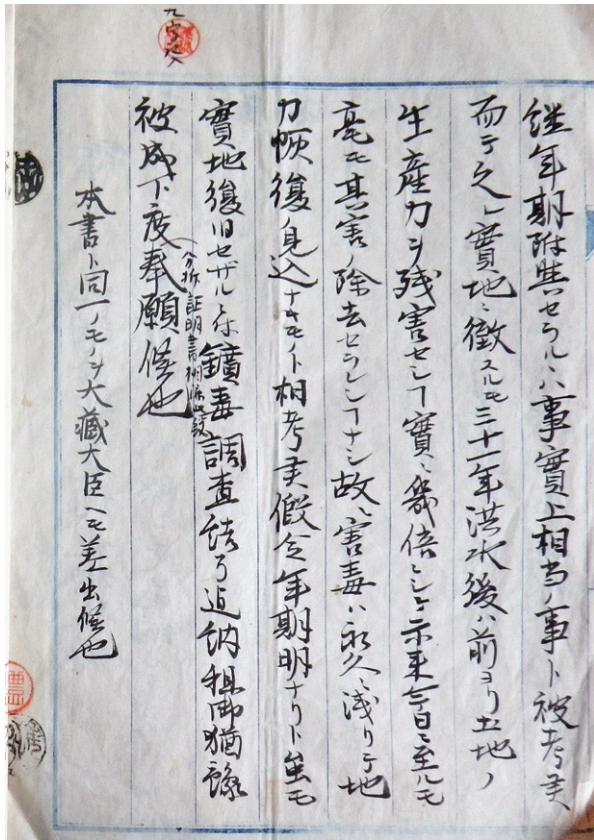 継年期附與セラルヽハ事實上相当ノ事ト被考候
而テ之レ實地ニ徴スルモ三十一年洪水後ハ前ヨリ土地ノ
生産力ヲ残害セシコト實ニ幾倍ニシテ示来今日ニ至ルモ
毫モ其害ノ除去セラレシコトナシ故ニ害毒ハ永久ニ浅リテ地
力恢復ノ見込ナキモノト相考候假令年期明ナリト虽モ
實地復旧セザルニ付鑛毒調査結了迄納租御猶豫
(分析証明書相添
被成下度奉願候也
本書ト同一ノモノヲ大藏大臣ヘモ差出候也